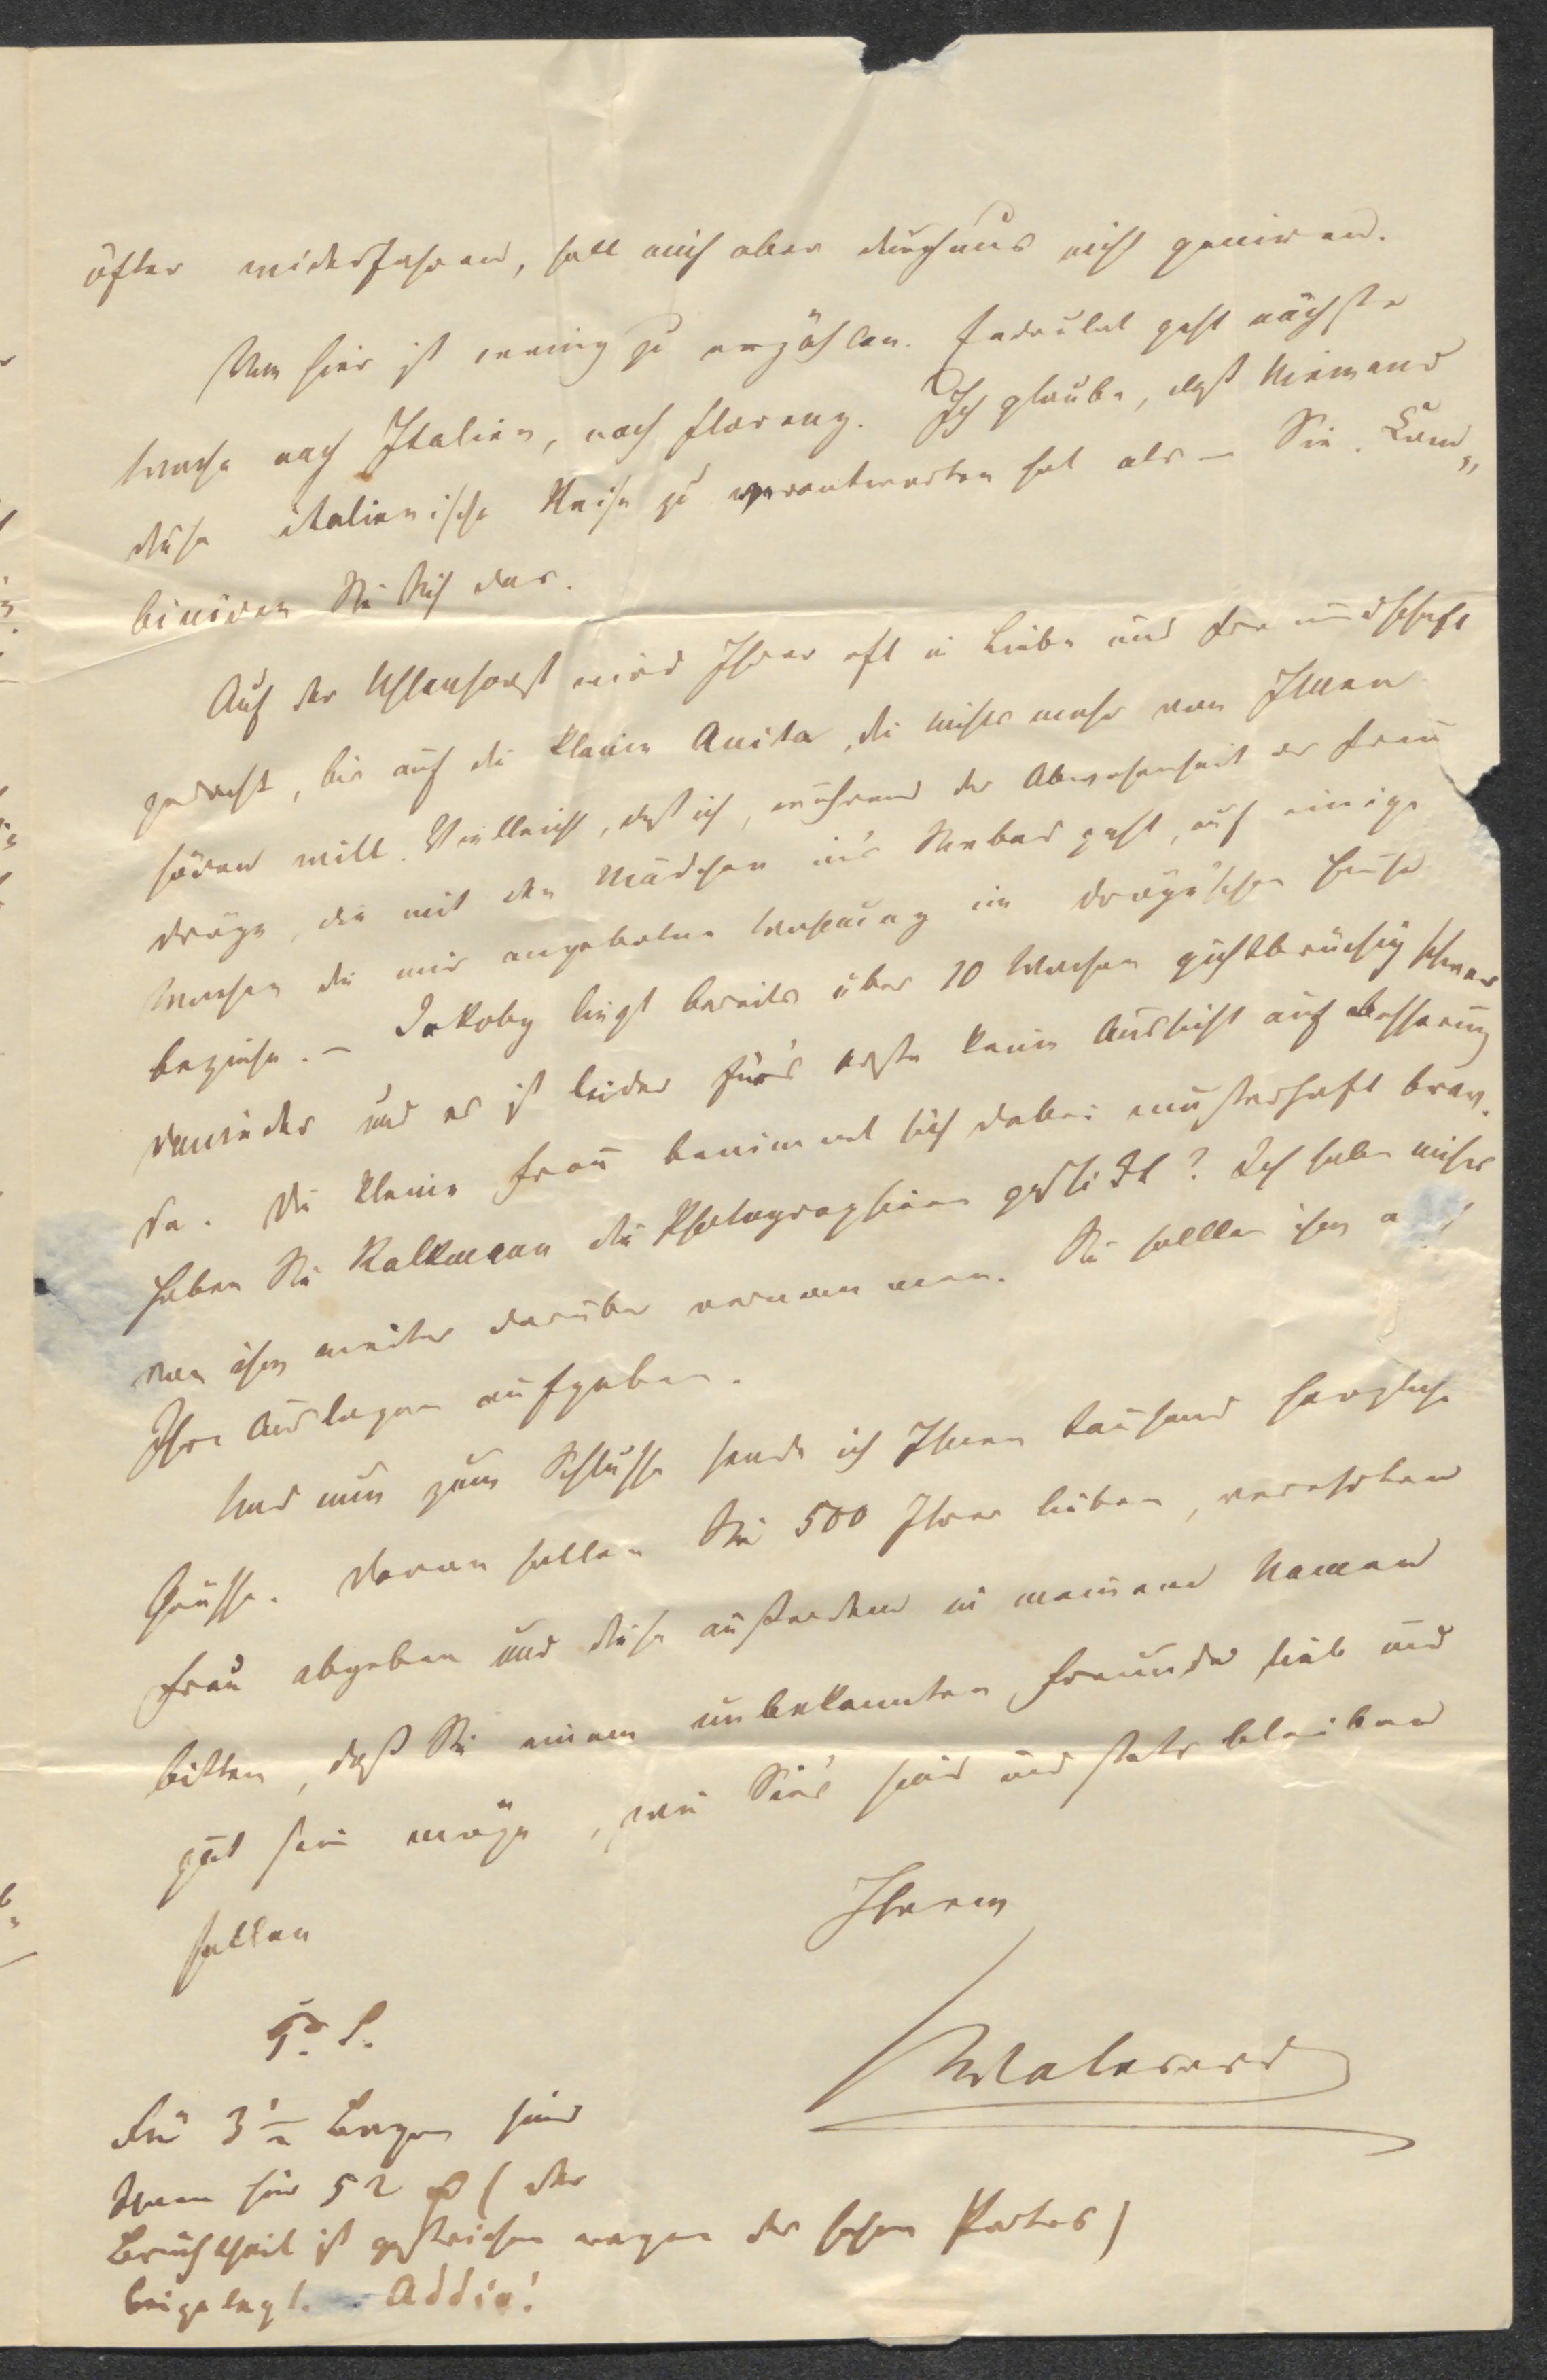 öfter widerfahren, soll mich aber durchaus nicht geniren.
Von hier ist wenig zu erzählen. geht nächste
Woche nach Italien, nach Florenz. Ich glaube, daß Niemand
diese italienische Reise zu verantworten hat als – Sie. Com„
biniren Sie Sich das.
Auf der Uhlenhorst wird Ihrer oft in Liebe und Freundschaft
gedacht, bis auf die kleine Anita, die nichts mehr von Ihnen
hören will. Vielleicht, daß ich, während der Abwesenheit der Frau
Dröge, die mit den Mädchen in's Seebad geht, auf einige
Wochen die mir angebotene Wohnung im Dröge'schen Hause
beziehe. – Jakoby liegt bereits über 10 Wochen gichtbrüchig schwer
danieder und es ist leider für's erste keine Aussicht auf Besserung
da. Die kleine Frau benimmt sich dabei musterhaft brav.
Haben Sie Kallmann die Photographien geschickt? Ich habe nichts
von ihm weiter darüber vernommen. Sie sollten ihm
Ihre Auslagen aufgeben.
Und nun zum Schlusse sende ich Ihnen tausend herzliche
Grüsse. Davon sollen Sie 500 Ihrer lieben, verehrten
Frau abgeben und diese außerdem in meinem Namen
bitten, daß Sie einem unbekannten Freunde lieb und
gut sein möge, wie Sie's sind und stets bleiben
sollen
Ihrem
P. S.
Für 3 1/2 Bogen sind
Ihnen hier 52 (der
Bruchtheil ist gestrichen wegen des hohen Portos)
beigelegt. – Addio!